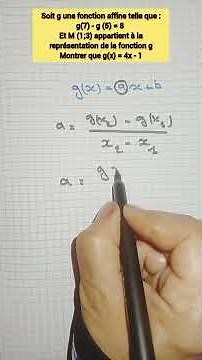 Soit g une fonction affine telle que :
g(7) - g (5) = 8
Et M (1;3) appartient à la
représentation de la fonction g
Montrer que g(x) = 4x - 1
g(x) = ax + b
a = g(x2) - g(x1)
x2 - x1
a = g